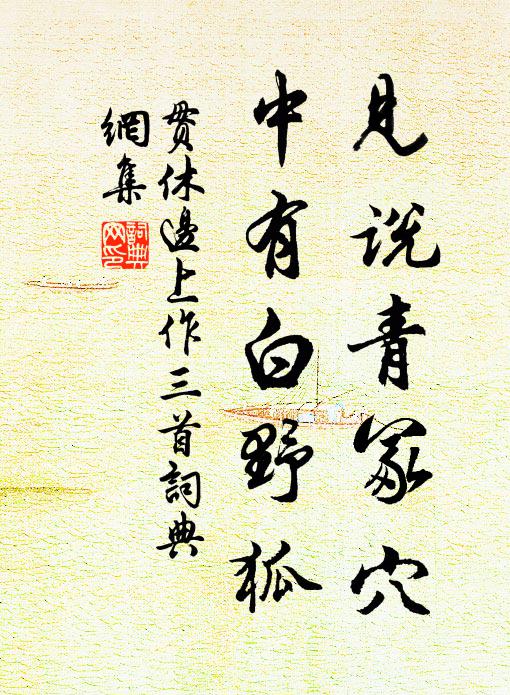 見説青冢穴
中有白野狐
贯休邊上作三首詞典
網集
詞典
网印